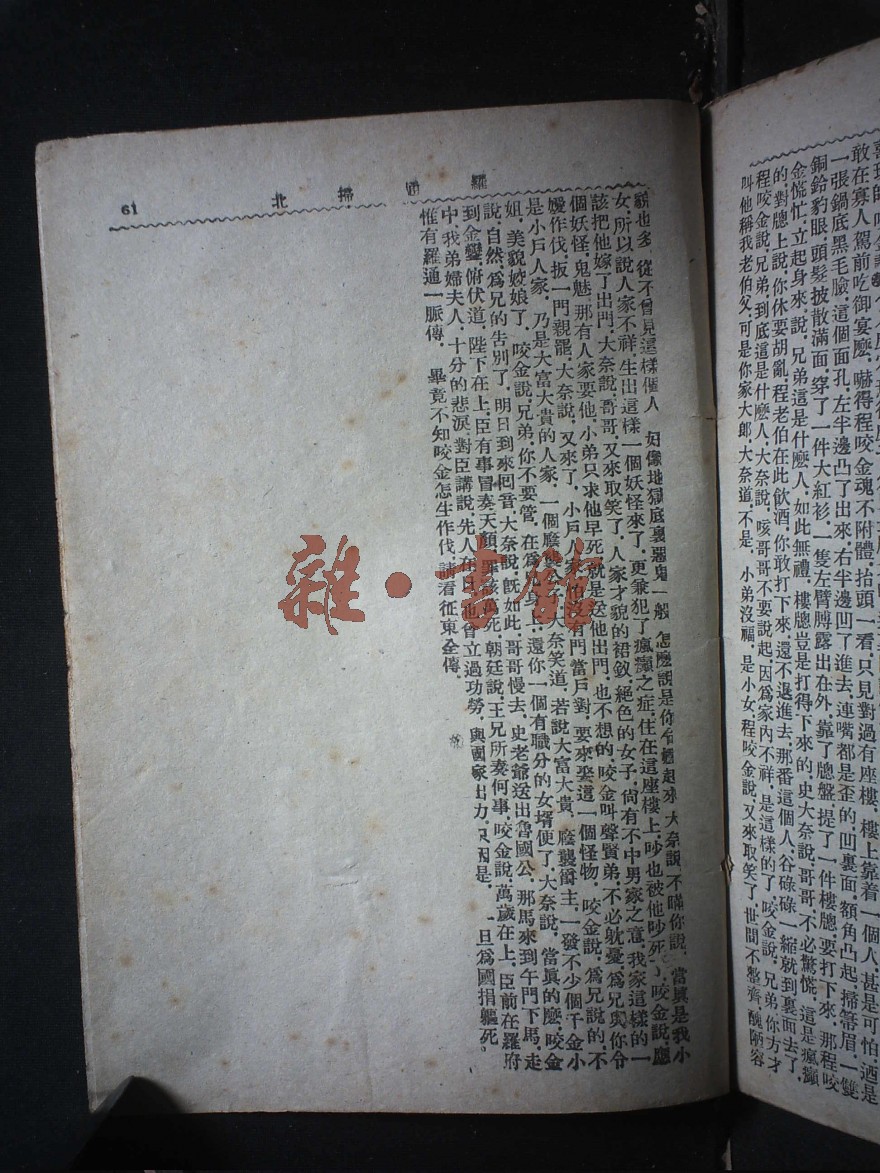 喜
敢在寡人駕前吃御宴麽，嚇得程咬金魂不附體，抬頭一看，只見對過有座樓，樓上靠着一個人，甚是可怕，迺是
一張鍋底黑毛臉，這個面孔，左半邊凸了出來，右半邊凹了進去，連嘴都是歪的，凹裏面額角凸起，掃箒眉，一雙
銅鈴豹眼，頭髮披散滿面，穿了一件大紅衫，一隻左臂膊露出在外，靠了牕盤，提了一件樓牕，要打下來，那程咬
金慌忙，立起身來，說，兄弟這是什麽人，如此無禮，樓牕豈是打得下來的，史大奈說，哥哥，不必驚慌，這是瘋癲
的，對牕上說，你休要胡亂，程老伯在此飲酒，你敢打下來，還不退進去，那番這個人，谷碌碌一縮，就到裏面去了，
程咬金說，兄弟，到底這是什麽人，大奈說，咳哥哥不要說起，因爲家內不祥，是這樣的了，咬金說，兄弟，你方才
叫他稱我老伯父，可是你家大郎，大奈道，不是，小弟沒福，是小女，程咬金說，又來取笑了，世間不整齊，醜陋容
貌也多，從不曾見這樣個人，好像地獄底裏惡鬼一般，怎麽說是你 起來，大奈說，不瞞你說，當眞是我小
女，所以說人家不祥，生出這樣一個妖怪來了，更兼犯了瘋癲之症，住在這座樓上，吵也被他吵死了，咬金說，應
該把他嫁了出門，大奈說，哥哥，又來取笑了，人家才貌的裙釵，絕色的女子，尙有不中男家之意，我家這樣的一
個妖怪，鬼魅，那有人家要他，小弟只求他早死，就是送他出門，也不想的，咬金叫聲賢弟，不必躭憂，爲兄與你令
嬡作伐，扳一門親罷，大奈說，又來了，小戶人家怕沒有門當戶對，要來娶這一個怪物，咬金說，爲兄說的，不
是小戶人家，乃是大富大貴的人家，一個廕襲公子，大奈笑道，若說大富大貴，廕襲爵主，一發不少個千金小
姐，美貌姣娘了，咬金說，兄弟，你不要管，在爲兄身上，還你一個有職分的女壻便了，大奈說，當眞的麽，咬金
說，自然，爲兄的告別了，明日到來回音，大奈說，旣如此，哥哥慢去，史老爺送出魯國公，那馬來到午門下馬，走
到金鑾，俯伏道，陛下在上，臣有事冒奏天顏，罪該萬死，朝廷說，王兄所奏何事，咬金說，萬歲在上，臣前在羅府
中，我弟婦夫人，十分的悲淚，對臣講說，先人在日，也曾立過功勞，與國家出力，只因是，一旦爲國捐軀死。
惟有羅通一脈傳， 畢竟不知咬金怎生作伐，請看征東全傳，
羅通掃北
61
雜·書館